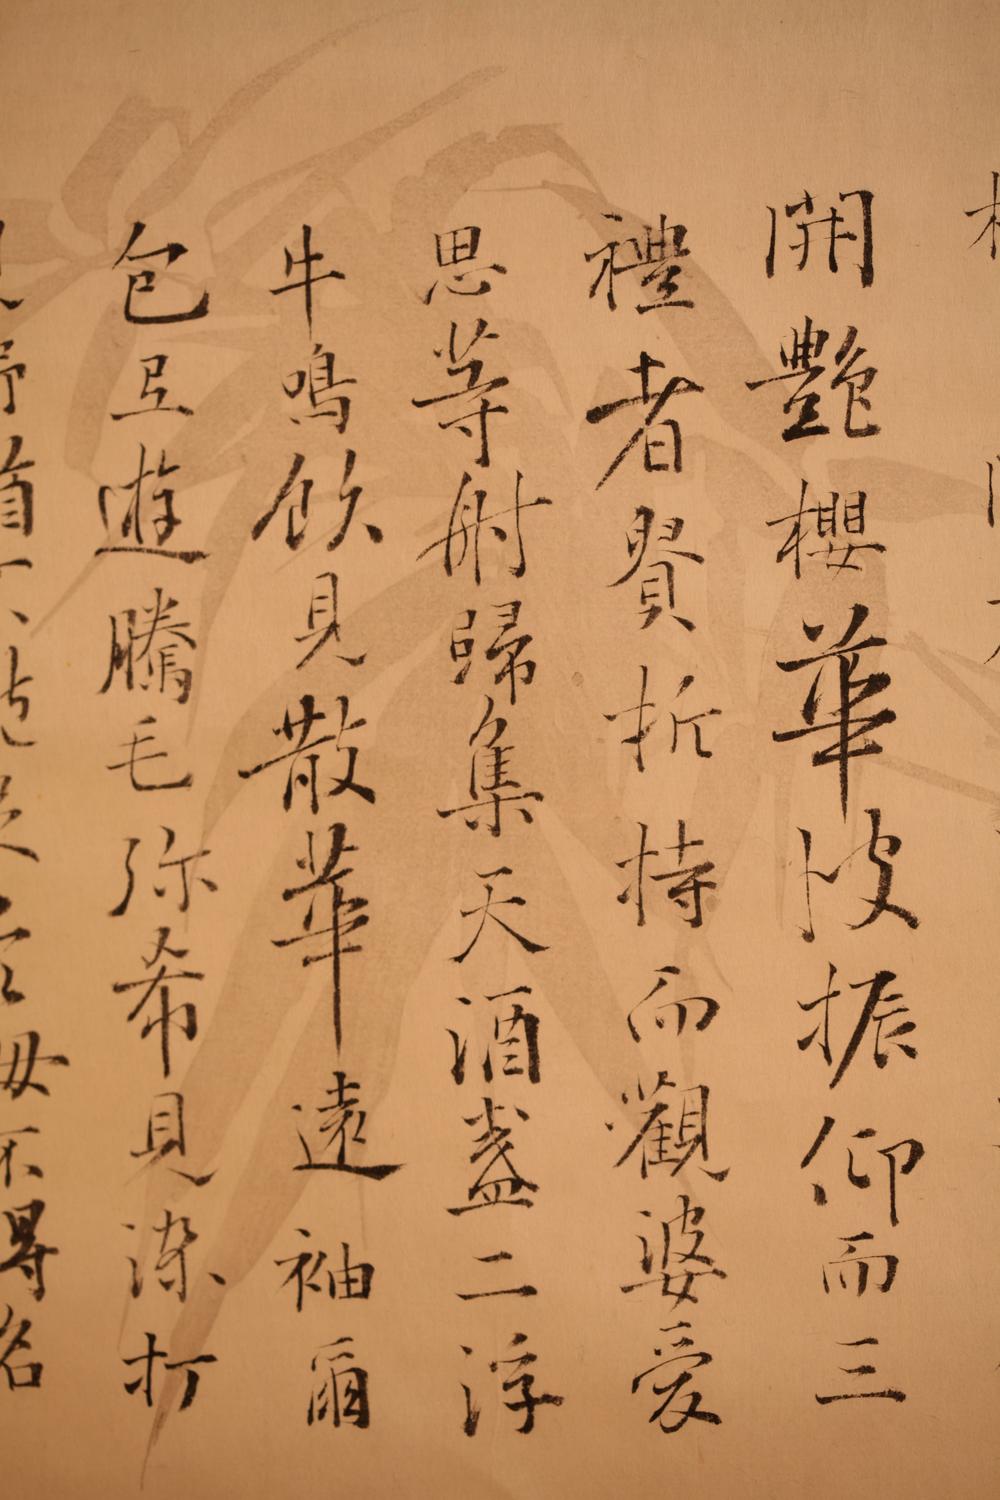 開艷櫻華彼振仰而三
禮者賢折持而觀婆爱
思等射歸集天酒盞二浮
牛鳴飲見散華遠袖爾
包互遊騰毛弥希見染打